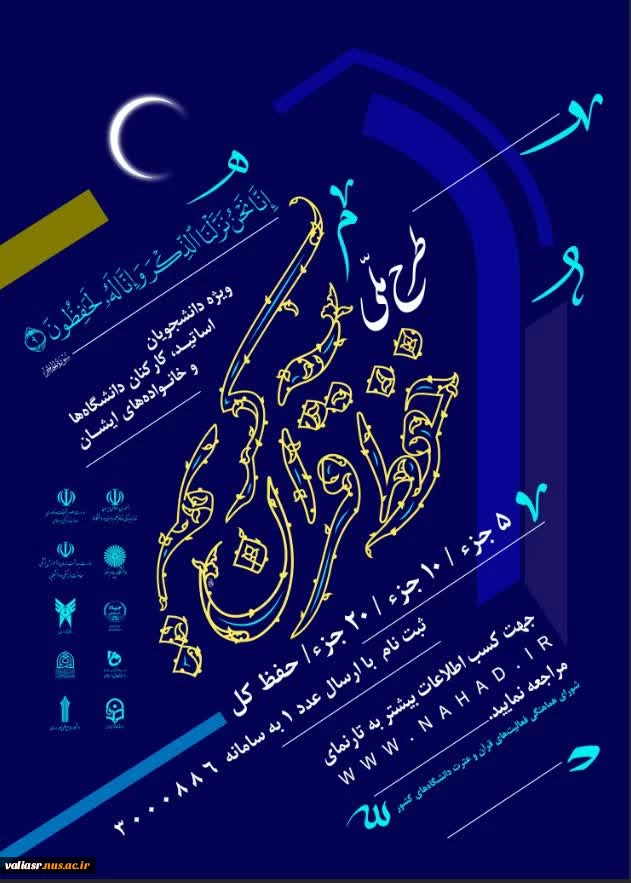 إِنَّا نَحْنُ نَزَّلْنَا الذِّكْرَ وَإِنَّا لَهُ لَحَافِظُونَ ۹
ویژه دانشجویان
اساتید، کارکنان دانشگاه‌ها
و خانواده‌های ایشان
طرح ملّی
حفظ قرآن کریم
۵ جزء / ۱۰ جزء / ۲۰ جزء / حفظ کل
ثبت نام با ارسال عدد ۱ به سامانه ۳۰۰۰۸۸۶
جهت کسب اطلاعات بیشتر به تارنمای
WWW.NAHAD.IR
مراجعه نمایید.
شورای هماهنگی فعالیت‌های قرآن و عترت دانشگاه‌های کشور
valiasr.nus.ac.ir